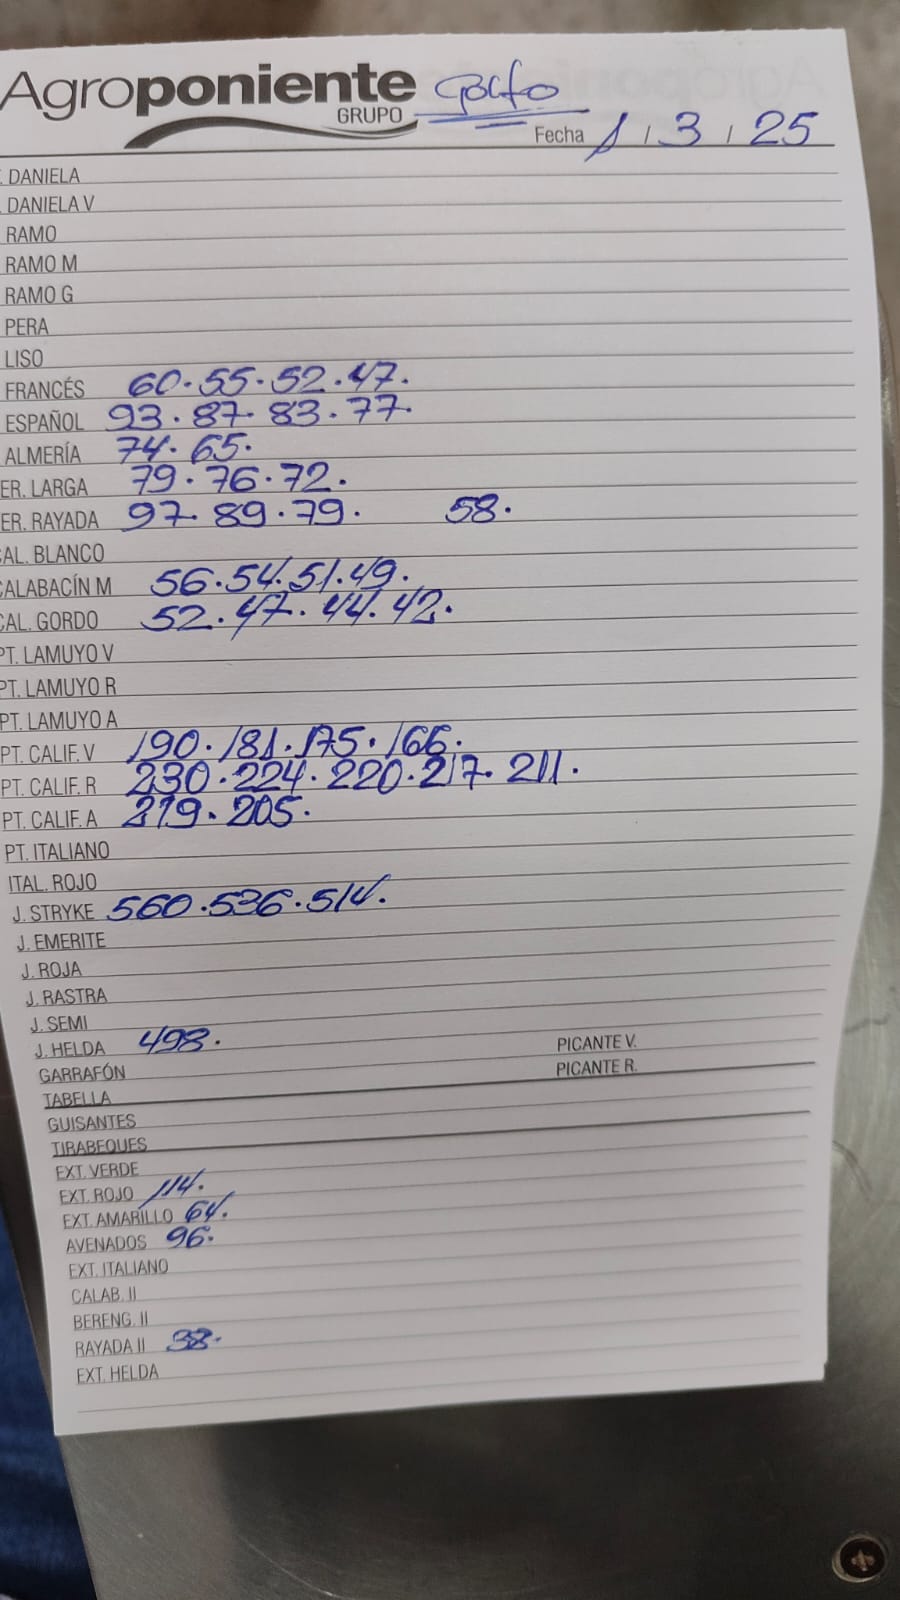 Agroponiente
GRUPO
Golfo
Fecha 1 / 3 / 25
. DANIELA
. DANIELA V
RAMO
RAMO M
RAMO G
PERA
LISO
FRANCÉS 60. 55. 52. 47.
ESPAÑOL 93. 87. 83. 77.
ALMERÍA 74. 65.
ER. LARGA 79. 76. 72.
ER. RAYADA 97. 89. 79. 58.
AL. BLANCO
CALABACÍN M 56. 54. 51. 49.
CAL. GORDO 52. 47. 44. 42.
PT. LAMUYO V
PT. LAMUYO R
PT. LAMUYO A
PT. CALIF. V 190. 181. 175. 166.
PT. CALIF. R 230. 224. 220. 217. 211.
PT. CALIF. A 219. 205.
PT. ITALIANO
ITAL. ROJO
J. STRYKE 560. 536. 514.
J. EMERITE
J. ROJA
J. RASTRA
J. SEMI
J. HELDA 498. PICANTE V.
GARRAFÓN PICANTE R.
TABELLA
GUISANTES
TIRABEQUES
EXT. VERDE
EXT. ROJO 114.
EXT. AMARILLO 64.
AVENADOS 96.
EXT. ITALIANO
CALAB. II
BERENG. II
RAYADA II 38.
EXT. HELDA